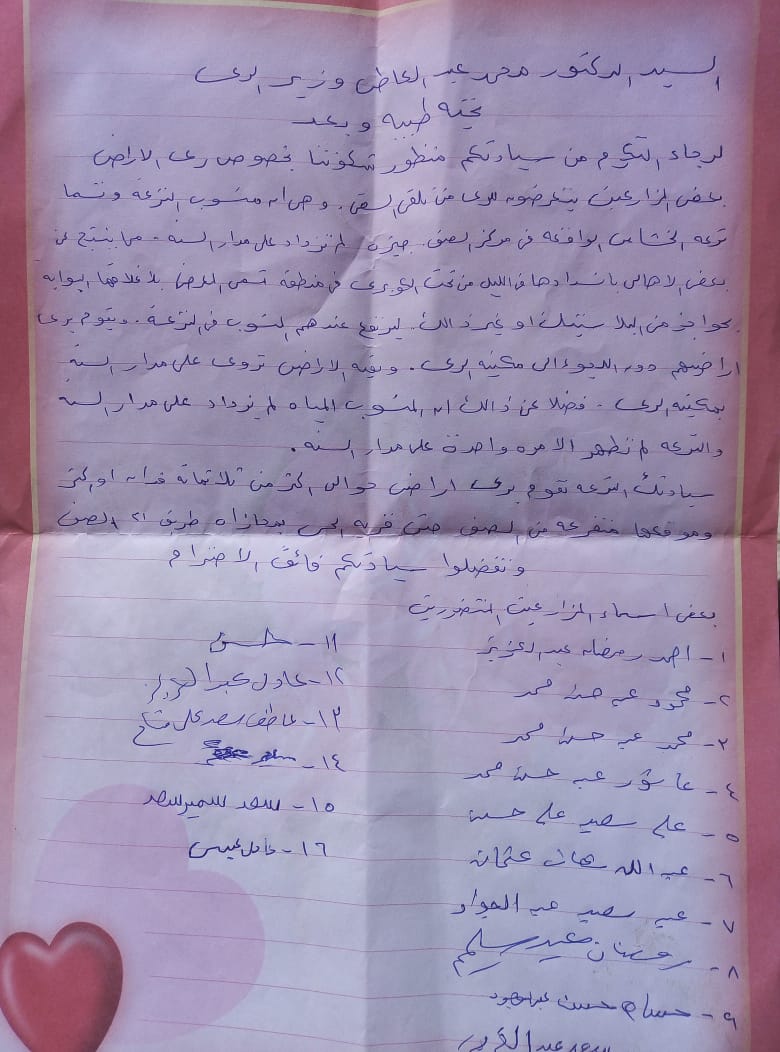 السيد الدكتور محمد عبد العاطى وزير الرى
تحيه طيبه وبعد
لرجاء التكرم من سيادتكم منظور شكوتنا بخصوص رى الاراض
بعض المزارعين يتعرضون للرى من السقى. وهى ان منسوب الترعة وتسما
ترعه الخشاب الواقعه فى مركز الصف جيزه لم تزداد على مدار السنه - مما ينتج عن
بعض الاهالى بانسدادها فى الليل من تحت الكوبرى فى منطقة تسمى بلاغلاقها البوابه
بحواجز من البلاستيك او غير ذالك ليرتفع عندهم المنسوب فى الترعة. ويقوم برى
اراضيهم دون اللجوء الى مكينه الرى. وبقيه الاراض تروى على مدار السنة
بمكينه الرى - فضلا عن ذالك ان المنسوب المياه لم يزداد على مدار السنه
والترعه لم تطهر الا مره واحدة على مدار السنه.
سيادتك الترعه تقوم برى اراضى حوالى اكثر من ثلاثمائة فدان او اكثر
وموقعها متفرعه من الصف حتى قريه بمحازاه طريق الصف
وتفضلوا سيادتكم فائق الاحترام
بعض اسماء المزارعين المتضررين
١- احمد رمضان عبد العزيز
٢- محمود عيد حسن محمد
٣- محمد عيد حسن محمد
٤- عاشور عيد حسن محمد
٥- على سعيد على حسن
٦- عبد الله هانى عثمان
٧- عيد سعيد عبد الجواد
٨- رمضان سليم
٩- حسام حسن
سعد عبد
١١-
١٢- عادل
١٣- عاطف سعد على
١٤-
١٥- سعد سمير سعد
١٦- عادل عيسى